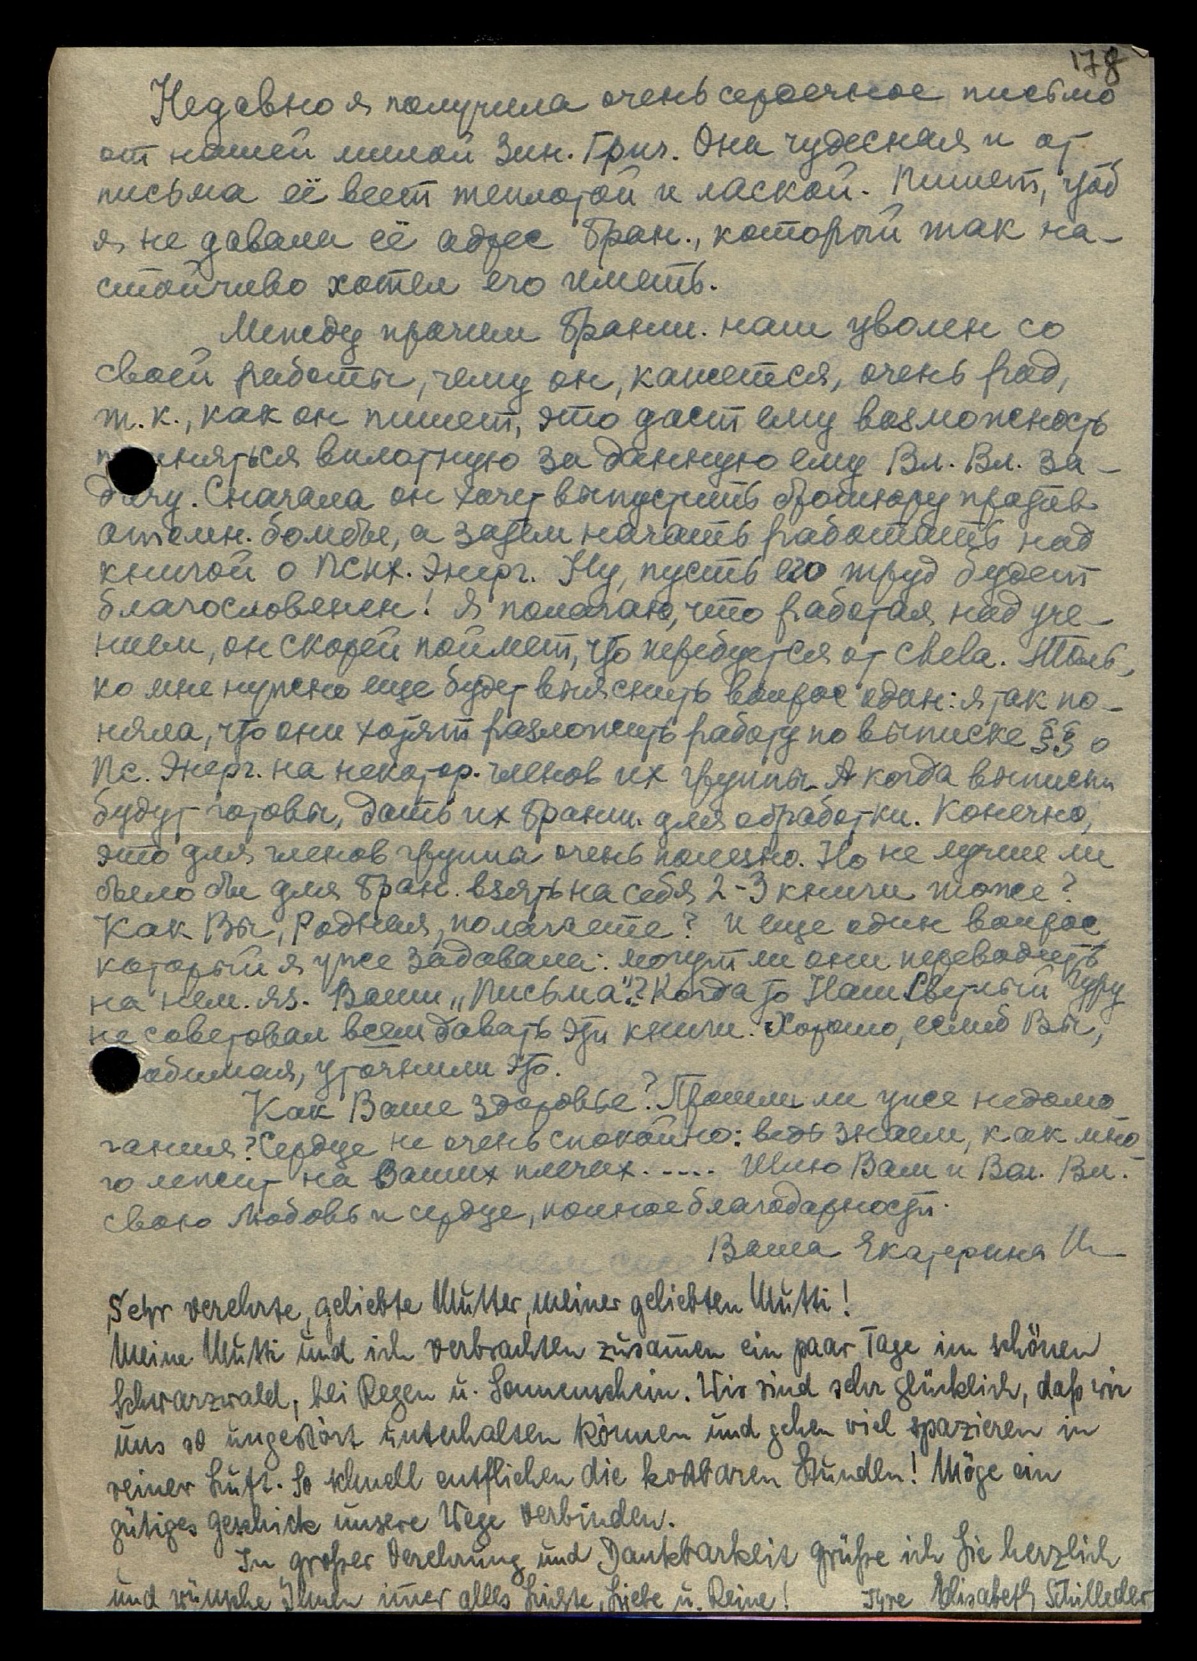 178
Недавно я получила очень сердечное письмо
от нашей милой Зин. Григ. Она чудесная и от
письма её веет теплотой и лаской. Пишет, чтоб
я не давала её адрес Бран., который так на-
стойчиво хотел его иметь.
Между прочим Бранш. наш уволен со
своей работы, чему он, кажется, очень рад,
т.к., как он пишет, это даст ему возможность
приняться вплотную за данную ему Вл. Вл. за-
дачу. Сначала он хочет выпустить брошюру против
атомн. бомбы, а затем начать работать над
книгой о Псих. Энерг. Ну, пусть его труд будет
благословенен! Я полагаю, что работая над уче-
нием, он скорей поймет, что требуется от света. Толь-
ко мне нужно еще будет выяснить вопрос один: я так по-
няла, что они хотят разложить работу по выписке §§ о
Пс. Энерг. на некотор. членов их группы. А когда выписки
будут готовы, дать их Бранш. для обработки. Конечно,
это для членов группы очень полезно. Но не лучше ли
было бы для Бран. взять на себя 2-3 книги тоже?
Как Вы, Родная, полагаете? И еще один вопрос
который я уже задавала: могут ли они переводить
на нем. яз. Ваши „Письма"? Когда то Наш Светлый Гуру
не советовал всем давать эти книги. Хорошо, еслиб Вы,
юбимая, уточнили это.
Как Ваше здоровье? Прошли ли уже недомо-
гания? Сердце не очень спокойно: ведь знаем, как мно-
го лежит на Ваших плечах..... Шлю Вам и Вал. Вл.
свою любовь и сердце, полное благодарности.
Ваша Екатерина И
Sehr verehrte, geliebte Mutter, meiner geliebten Mutti!
Meine Mutti und ich verbrachten zusamen ein paar Tage im schönen
Schwarzwald, bei Regen u. Sonnenschein. Wir sind sehr glücklich, daß wir
uns so ungestört unterhalten können und gehen viel spazieren in
reiner Luft. So schnell entfliehen die kostbaren Stunden! Möge ein
gütiges Geschick unsere Wege verbinden.
In großer Verehrung und Dankbarkeit grüße ich Sie herzlich
und wünsche Ihnen imer alles Lichte, Liebe u. Reine! Ihre Elisabeth Schilleder